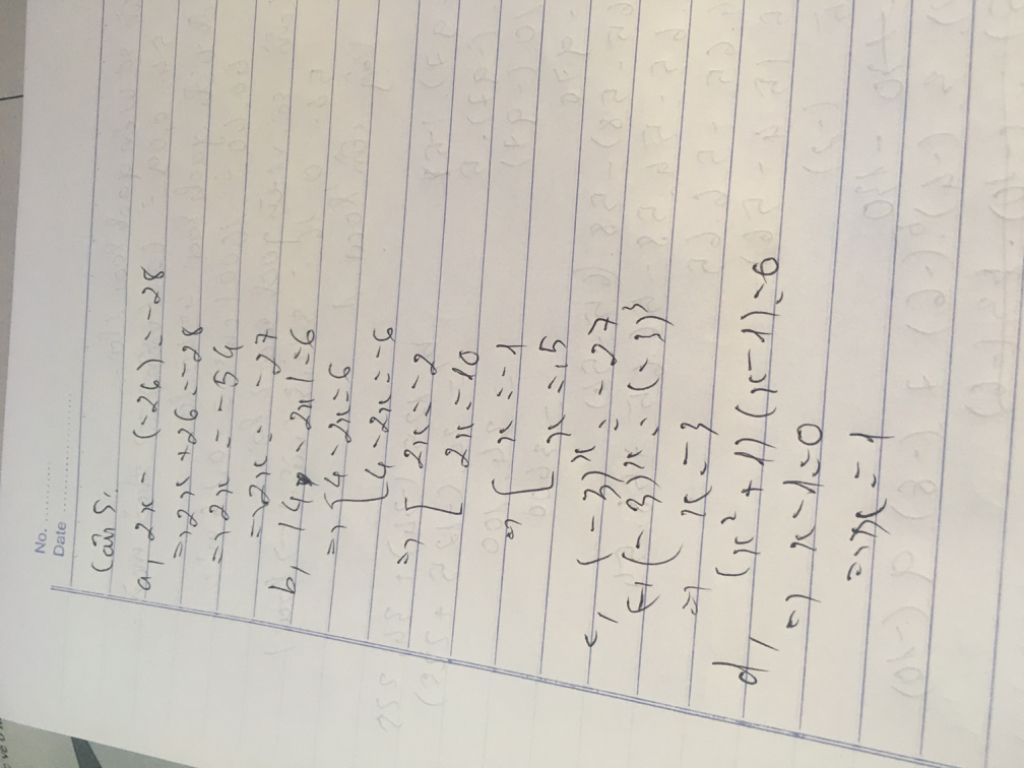 No. ............
Date ............
Câu 5,
a, 2x - (-26) = -28
=> 2x + 26 = -28
=> 2x = -54
= 2x = -27
b, |4 - 2x| = 6
=> [4 - 2x = 6
[4 - 2x = -6
=> [2x = -2
[2x = 10
=> [x = -1
[x = 5
c, (-3)ˣ = -27
(=) (-3)x = (-3)³
=> x = -3
d, (x² + 1) (x - 1) = 0
=> x - 1 = 0
=> x = 1